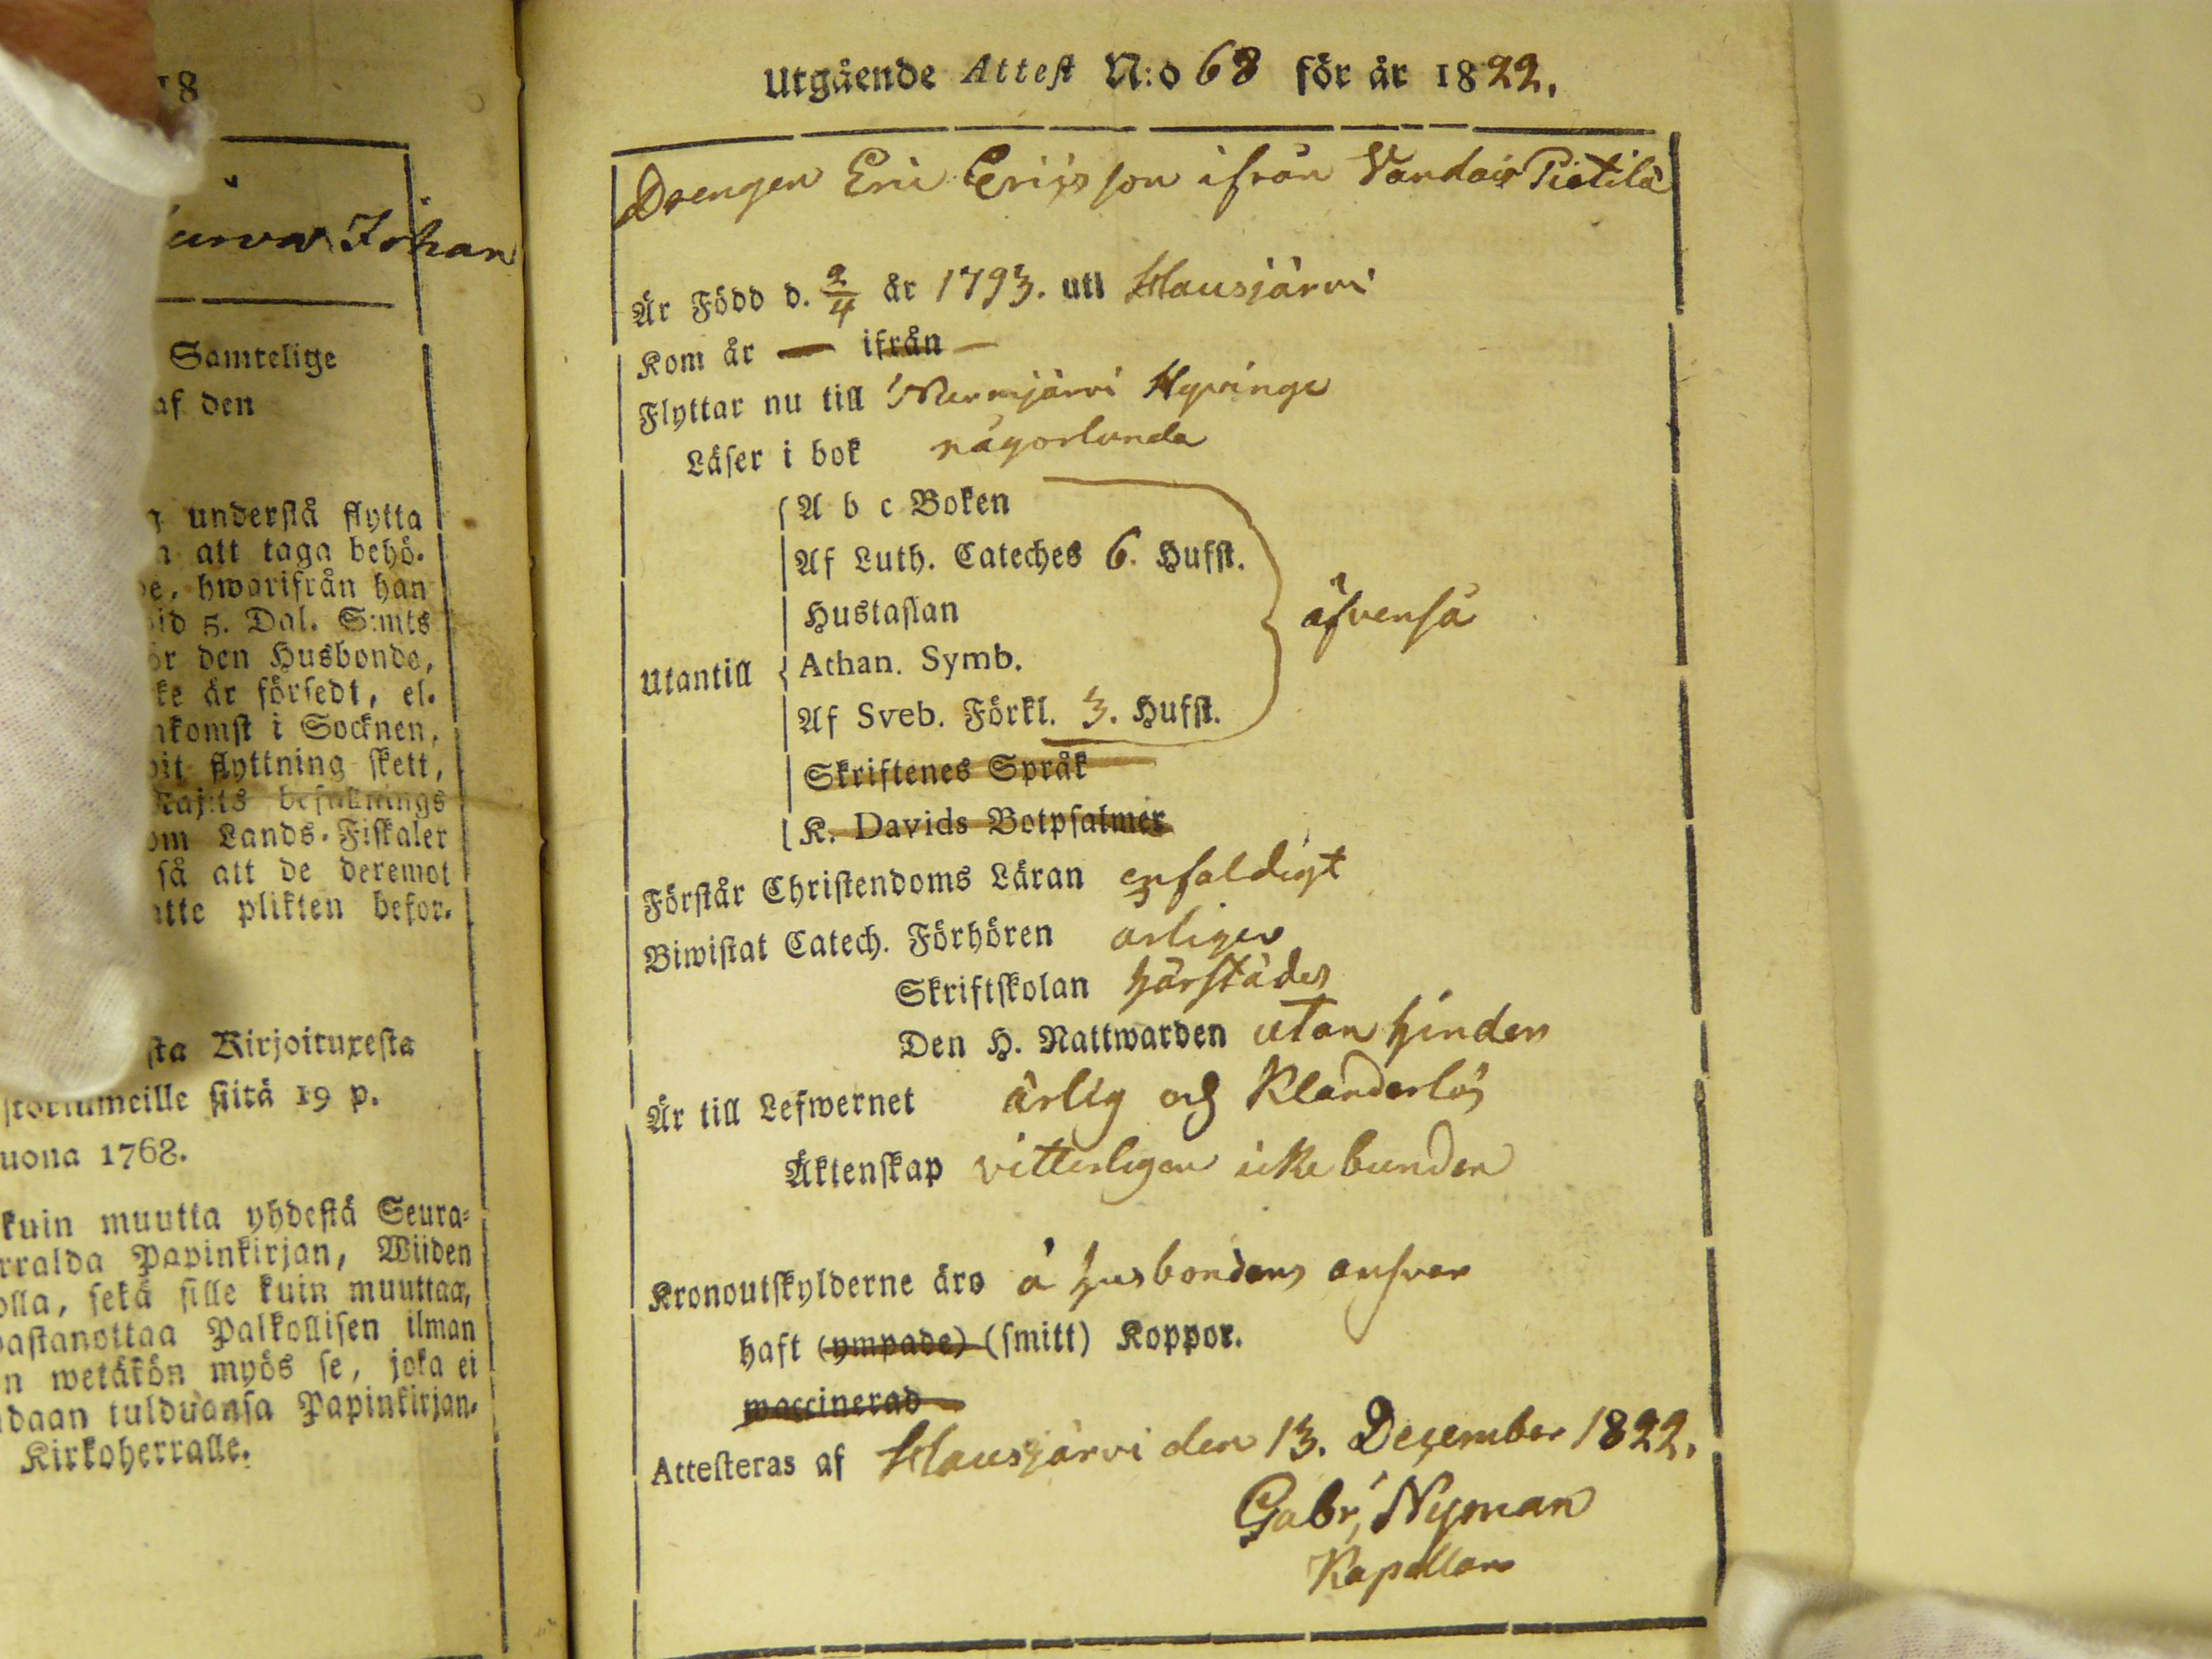 18
Johan
Samtelige
af den
understå flytta
att taga behö-
hwarifrån han
5. Dal. S:mts
den Husbonde,
är försedt, el-
komst i Socknen,
flyttning skett,
befallnings
Lands-Fiskaler
så att de deremot
plikten befor-
Kirjoituxesta
siitä 19 p.
1768.
kuin muutta yhdestä Seura-
Papinkirjan, Wiiden
sekä sille kuin muuttaa,
Palkollisen ilman
wetäkön myös se, joka ei
tulduansa Papinkirjan-
Kirkoherralle.
Utgående Attest N:o 68 för år 1822.
Drengen Eric Ericsson ifrån Vandais Pietilä
Är Född d. 2/4 år 1793. uti Hausjärvi
Kom år — ifrån —
Flyttar nu till Nurmijärvi Hyvinge
Läser i bok någorlunda
A b c Boken
Af Luth. Cateches 6. Hufst.
Hustaflan
äfvenså
Utantill
Athan. Symb.
Af Sveb. Förkl. 3. Hufst.
Skriftenes Språk
K. Davids Botpsalmer
Förstår Christendoms Läran enfaldigt
Biwistat Catech. Förhören årligen
Skriftskolan härstädes
Den H. Nattwarden utan hinder
Är till Lefwernet ärlig och Klanderlös
Äktenskap vitterligen icke bunden
Kronoutskylderne äro å husbondens answar
haft (ympade) (smitt) Koppor.
waccinerad
Attesteras af Hausjärvi den 13. December 1822.
Gabr. Nyman
Kapellan